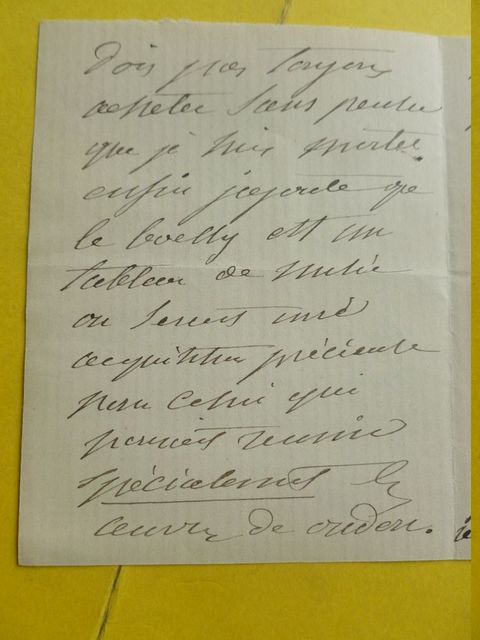 dois pas toujours
acheter sans penser
que je suis mortel
enfin j'ajoute que
le boilly est un
tableau de musée
ou serait une
acquisition précieuse
pour celui qui
pourrait réunir
spécialement les
œuvres de oudon.